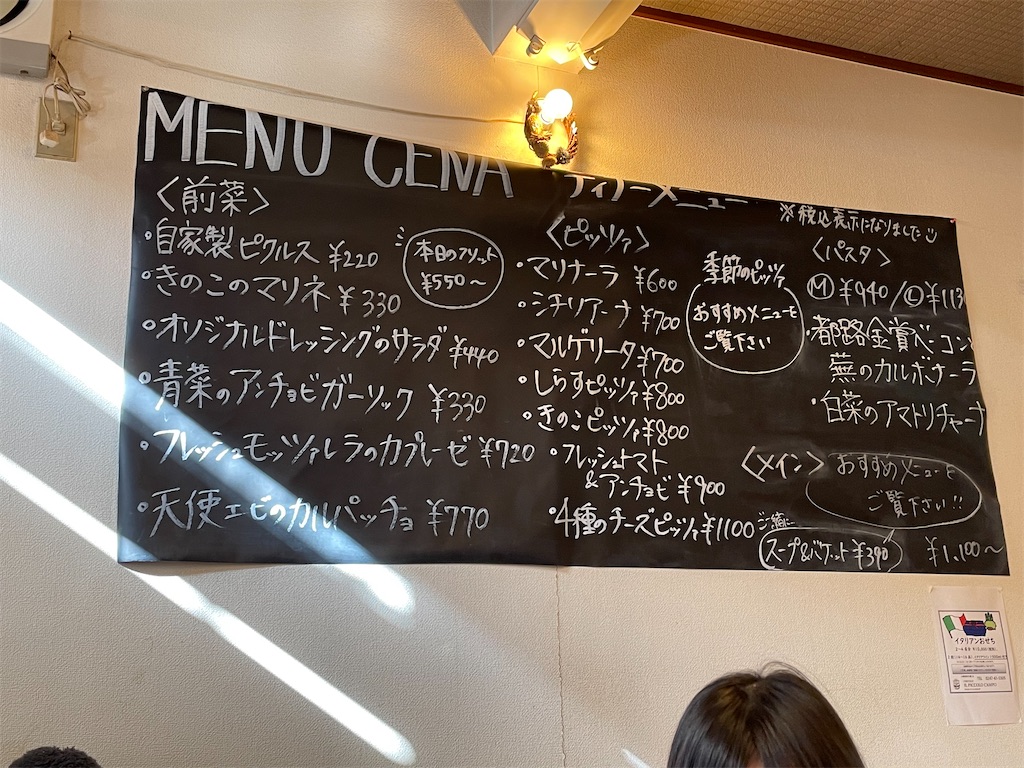 MENU CENA
ディナーメニュー
※税込表示になりました
〈前菜〉
・自家製ピクルス ¥220
・きのこのマリネ ¥330
・オリジナルドレッシングのサラダ ¥440
・青菜のアンチョビガーリック ¥330
・フレッシュモッツァレラのカプレーゼ ¥720
・天使エビのカルパッチョ ¥770
本日のフリット
¥550〜
〈ピッツァ〉
・マリナーラ ¥600
・シチリアーナ ¥700
・マルゲリータ ¥700
・しらすピッツァ ¥800
・きのこピッツァ ¥800
・フレッシュトマト
&アンチョビ ¥900
・4種のチーズピッツァ ¥1100
季節のピッツァ
おすすめメニューを
ご覧下さい
〈パスタ〉
Ⓜ ¥940/Ⓛ ¥113
・都路金賞ベーコン
蕪のカルボナーラ
・白菜のアマトリチャーナ
〈メイン〉
おすすめメニューを
ご覧下さい!!
¥1,100〜
ご一緒に
スープ&バゲット ¥390
イタリアンおせち
IL PICCOLO CAMPO